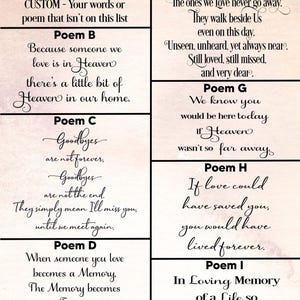 CUSTOM - Your words or
poem that isn't on this list
Poem B
Because someone we
love is in Heaven
there's a little bit of
Heaven in our home.
Poem C
Goodbyes
are not forever,
Goodbyes
are not the end.
They simply mean I'll miss you,
until we meet again.
Poem D
When someone you love
becomes a Memory.
The Memory becomes
The ones we love never go away.
They walk beside Us
even on this day.
Unseen, unheard, yet always near.
Still loved, still missed,
and very dear.
Poem G
We know you
would be here today
if Heaven
wasn't so far away.
Poem H
If love could
have saved you,
you would have
lived forever.
Poem I
In Loving Memory
of a Life so